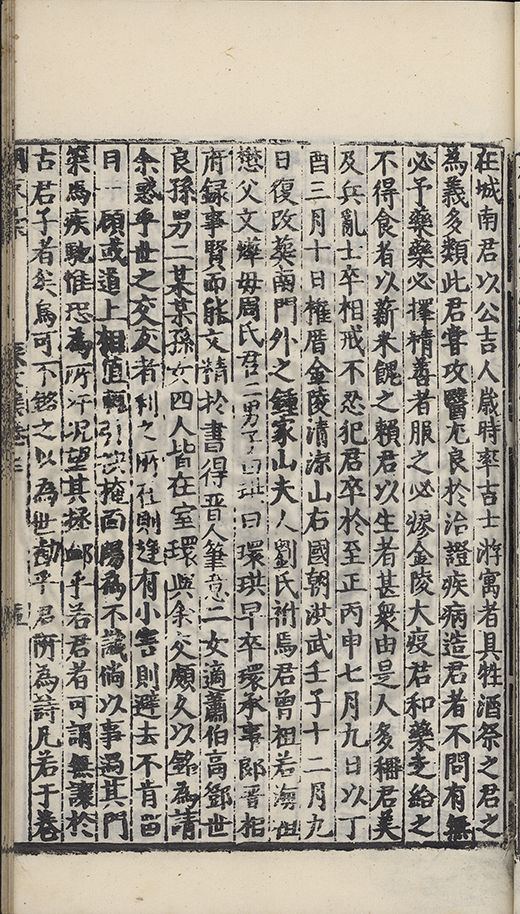 在城南君以公吉人歲時率吉士游寓者具牲酒祭之君之
為義多類此君嘗攻醫尤良於治證疾病造君者不問有無
必予藥藥必擇精善者服之必瘳金陵大疫君和藥走給之
不得食者以薪米餽之賴君以生者甚衆由是人多稱君美
及兵亂士卒相戒不忍犯君卒於至正丙申七月九日以丁
酉三月十日權厝金陵清涼山右國朝洪武壬子十二月九
日復改葬南門外之鍾家山夫人劉氏祔焉君曾祖若海祖
懋父文燁母周氏君二男子曰珙曰環珙早卒環承事郎晋相
府録事賢而能文精於書得晋人筆意二女適蕭伯高鄧世
良孫男二某某孫女四人皆在室環與余交願久以銘為請
余惑乎世之交友者利之所在則逢有小害則避去不肯留
目一顧或道上相值輒引袂掩面陽為不識倘以事過其門
策馬疾馳惟恐為所汗况望其拯卹乎若君者可謂無讓於
古君子者矣烏可不銘之以為世勸乎君所為詩凡若干卷